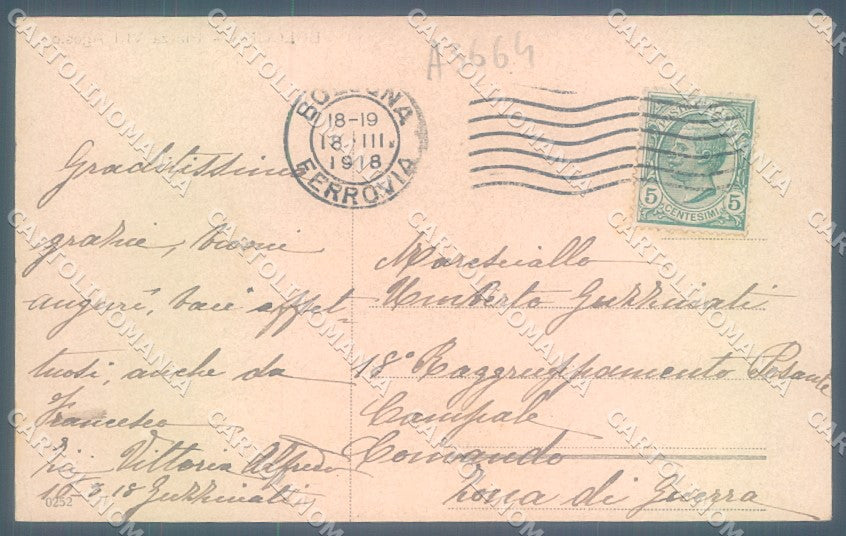 A-664
BOLOGNA
18-19
18 III
1918
FERROVIA
5 5
CENTESIMI
Graditissime
grazie, buoni
auguri, baci affet-
tuosi, anche da
Francesco
Zii Vittoria Alfredo
10-3-18 Guzzinati
0252
Maresciallo
Umberto Guzzinati
18° Raggruppamento Pesante
Campale
Comando
Zona di Guerra
CARTOLINOMANIA